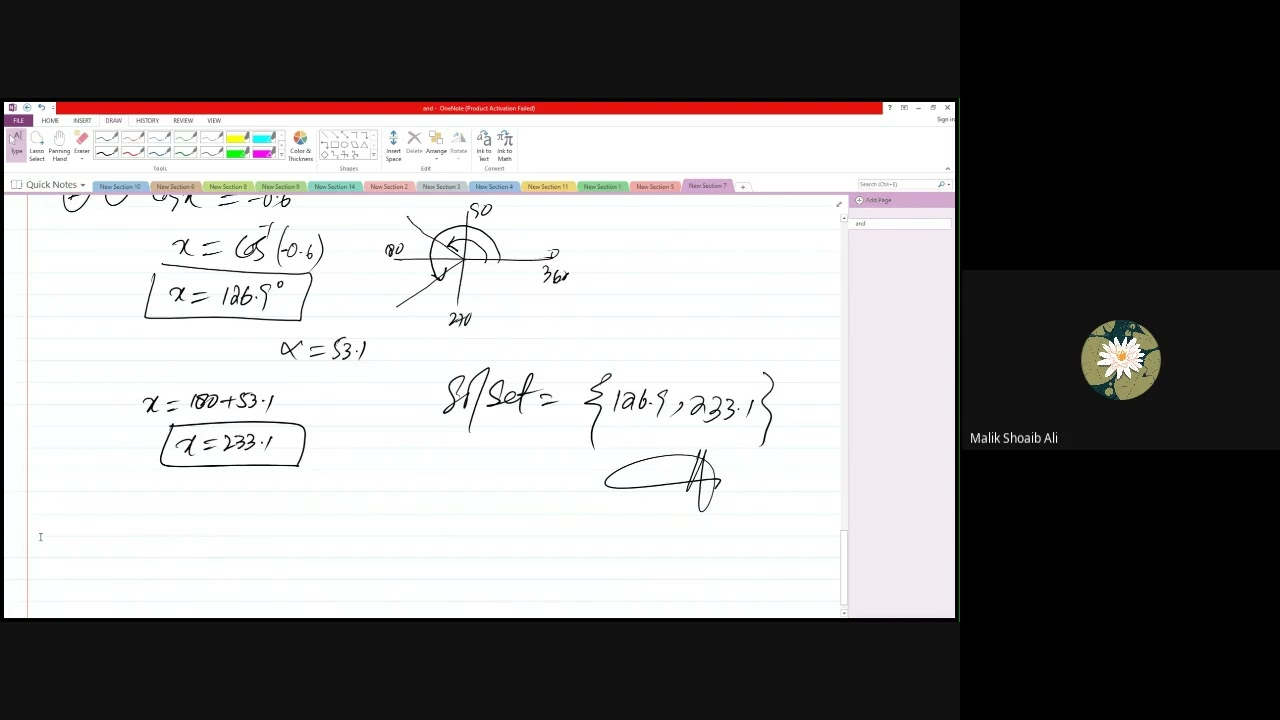 and - OneNote (Product Activation Failed)
Sign in
FILE HOME INSERT DRAW HISTORY REVIEW VIEW
Type
Lasso Select
Panning Hand
Eraser
Color & Thickness
Insert Space
Delete
Arrange
Rotate
Ink to Text
Ink to Math
Tools
Shapes
Edit
Convert
Quick Notes
New Section 10
New Section 6
New Section 8
New Section 9
New Section 14
New Section 2
New Section 3
New Section 4
New Section 11
New Section 1
New Section 5
New Section 7
Search (Ctrl+E)
Add Page
and
cosx = -0.6
x = Cos⁻¹(-0.6)
x = 126.9°
90
180
0
360
270
α = 53.1
x = 180+53.1
x = 233.1
S/Set = {126.9, 233.1}
Malik Shoaib Ali